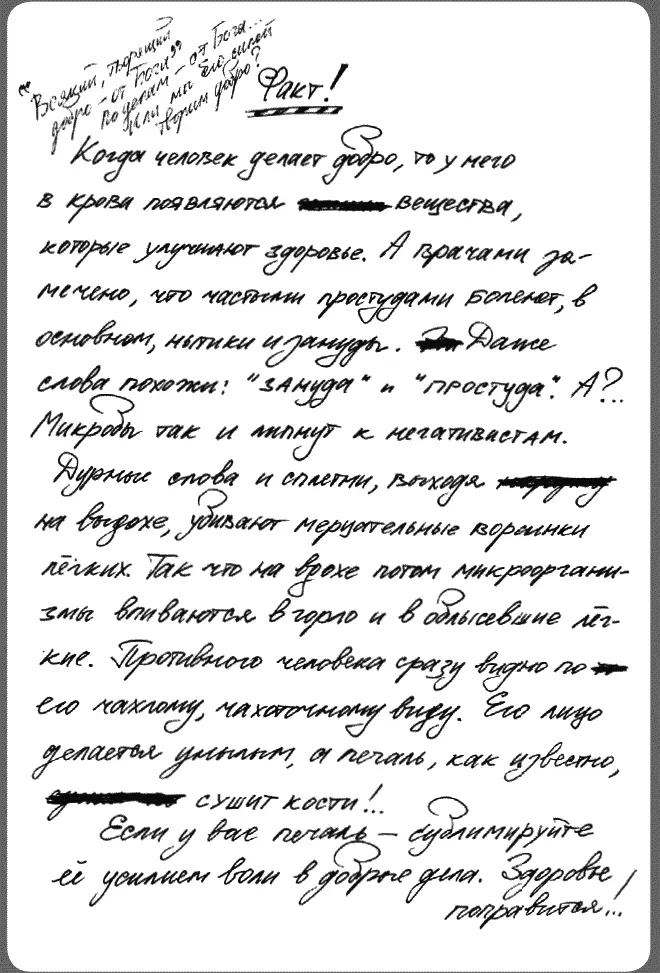 "Всякий, творящий
добро – от Бога"
По делам – от Бога...
Или мы его силой
творим добро?
Факт!
Когда человек делает добро, то у него
в крова появляются вещества,
которые улучшают здоровье. А врачами за-
мечено, что частыми простудами болеют, в
основном, нытики и зануды. Даже
слова похожи: "ЗАНУДА" и "ПРОСТУДА". А?..
Микробы так и липнут к негативастам.
Дурные слова и сплетни, выходя
на выдохе, убивают мерцательные ворсинки
лёгких. Так что на вдохе потом микроогани-
змы впиваются в горло и в облысевшие лёг-
кие. Противного человека сразу видно по
его чахлому, чахоточному виду. Его лицо
делается унылым, а печаль, как известно,
сушит кости!..
Если у вас печаль – сублимируйте
её усилием воли в добрые дела. Здоровье
поправится...!